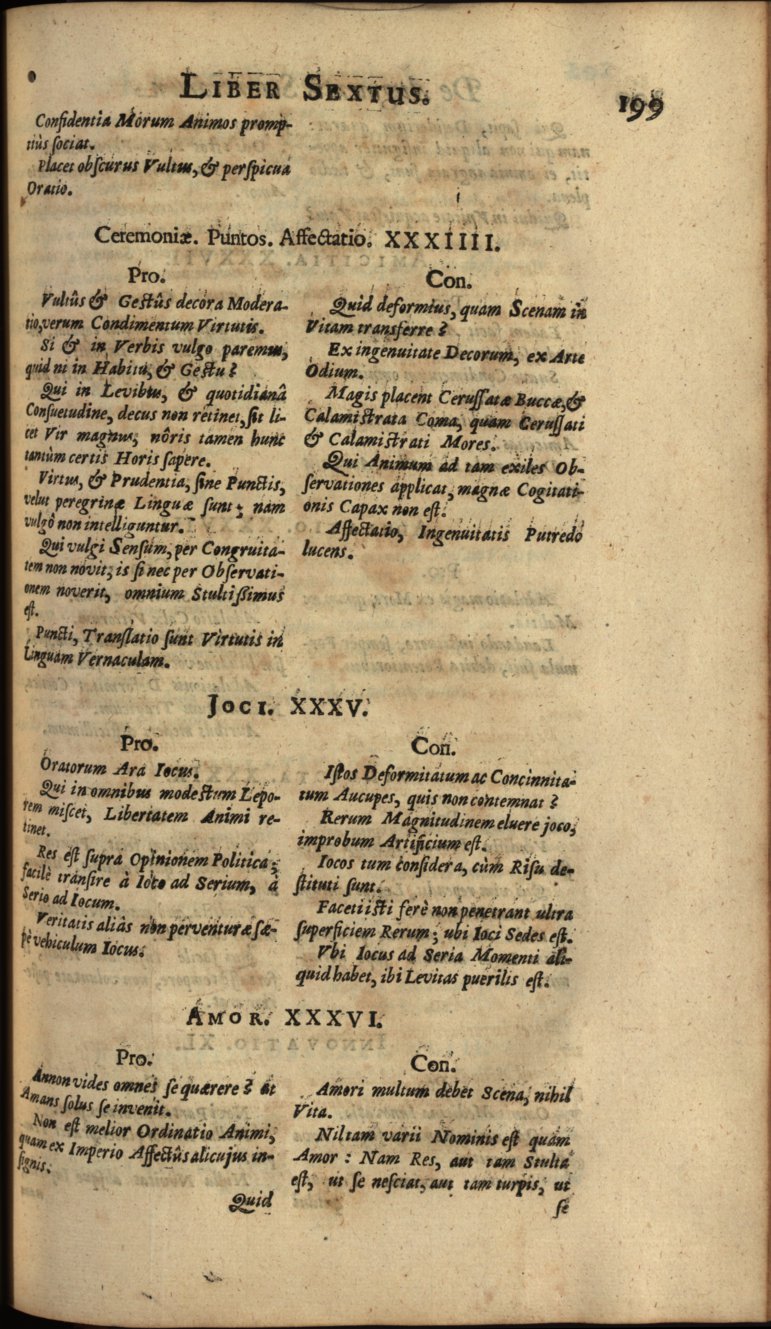 LIBER SEXTUS.
199
Confidentia Morum Animos promp-
tiùs sociat.
Placet obscurus Vultus, & perspicua
Oratio.
Ceremoniæ. Puntos. Affectatio. XXXIIII.
Pro.
Vultûs & Gestûs decora Modera-
tio, verum Condimentum Virtutis.
Si & in Verbis vulgo paremus,
quid ni in Habitu, & Gestu?
Qui in Levibus, & quotidianâ
Consuetudine, decus non retinet, sit li-
cet Vir magnus, nôris tamen hunc
tantùm certis Horis sapere.
Virtus, & Prudentia, sine Punctis,
velut peregrinæ Linguæ sunt; nam
vulgô non intelliguntur.
Qui vulgi Sensum, per Congruita-
tem non novit; is si nec per Observati-
onem noverit, omnium Stultissimus
est.
Puncti, Translatio sunt Virtutis in
Linguam Vernaculam.
Con.
Quid deformius, quam Scenam in
Vitam transferre?
Ex ingenuitate Decorum, ex Arte
Odium.
Magis placent Cerussatæ Buccæ, &
Calamistrata Coma, quam Cerussati
& Calamistrati Mores.
Qui Animum ad tam exiles Ob-
servationes applicat, magnæ Cogitati-
onis Capax non est.
Affectatio, Ingenuitatis Putredo
lucens.
JOCI. XXXV.
Pro.
Oratorum Ara Iocus.
Qui in omnibus modestum Lepo-
rem miscet, Libertatem Animi re-
tinet.
Res est supra Opinionem Politica;
facilè transire à Ioco ad Serium, à
Serio ad Iocum.
Veritatis aliâs non perventuræ sæ-
pè vehiculum Iocus.
Con.
Istos Deformitatum ac Concinnita-
tum Aucupes, quis non contemnat?
Rerum Magnitudinem eluere joco,
improbum Artificium est.
Iocos tum considera, cùm Risu de-
stituti sunt.
Faceti isti ferè non penetrant ultra
superficiem Rerum; ubi Ioci Sedes est.
Vbi Iocus ad Seria Momenti ali-
quid habet, ibi Levitas puerilis est.
AMOR. XXXVI.
Pro.
Annon vides omnes se quærere? at
Amans solus se invenit.
Non est melior Ordinatio Animi,
quam ex Imperio Affectûs alicujus in-
signis.
Quid
Con.
Amori multum debet Scena, nihil
Vita.
Nil tam varii Nominis est quàm
Amor: Nam Res, aut tam Stulta
est, ut se nesciat, aut tam turpis, ut
se